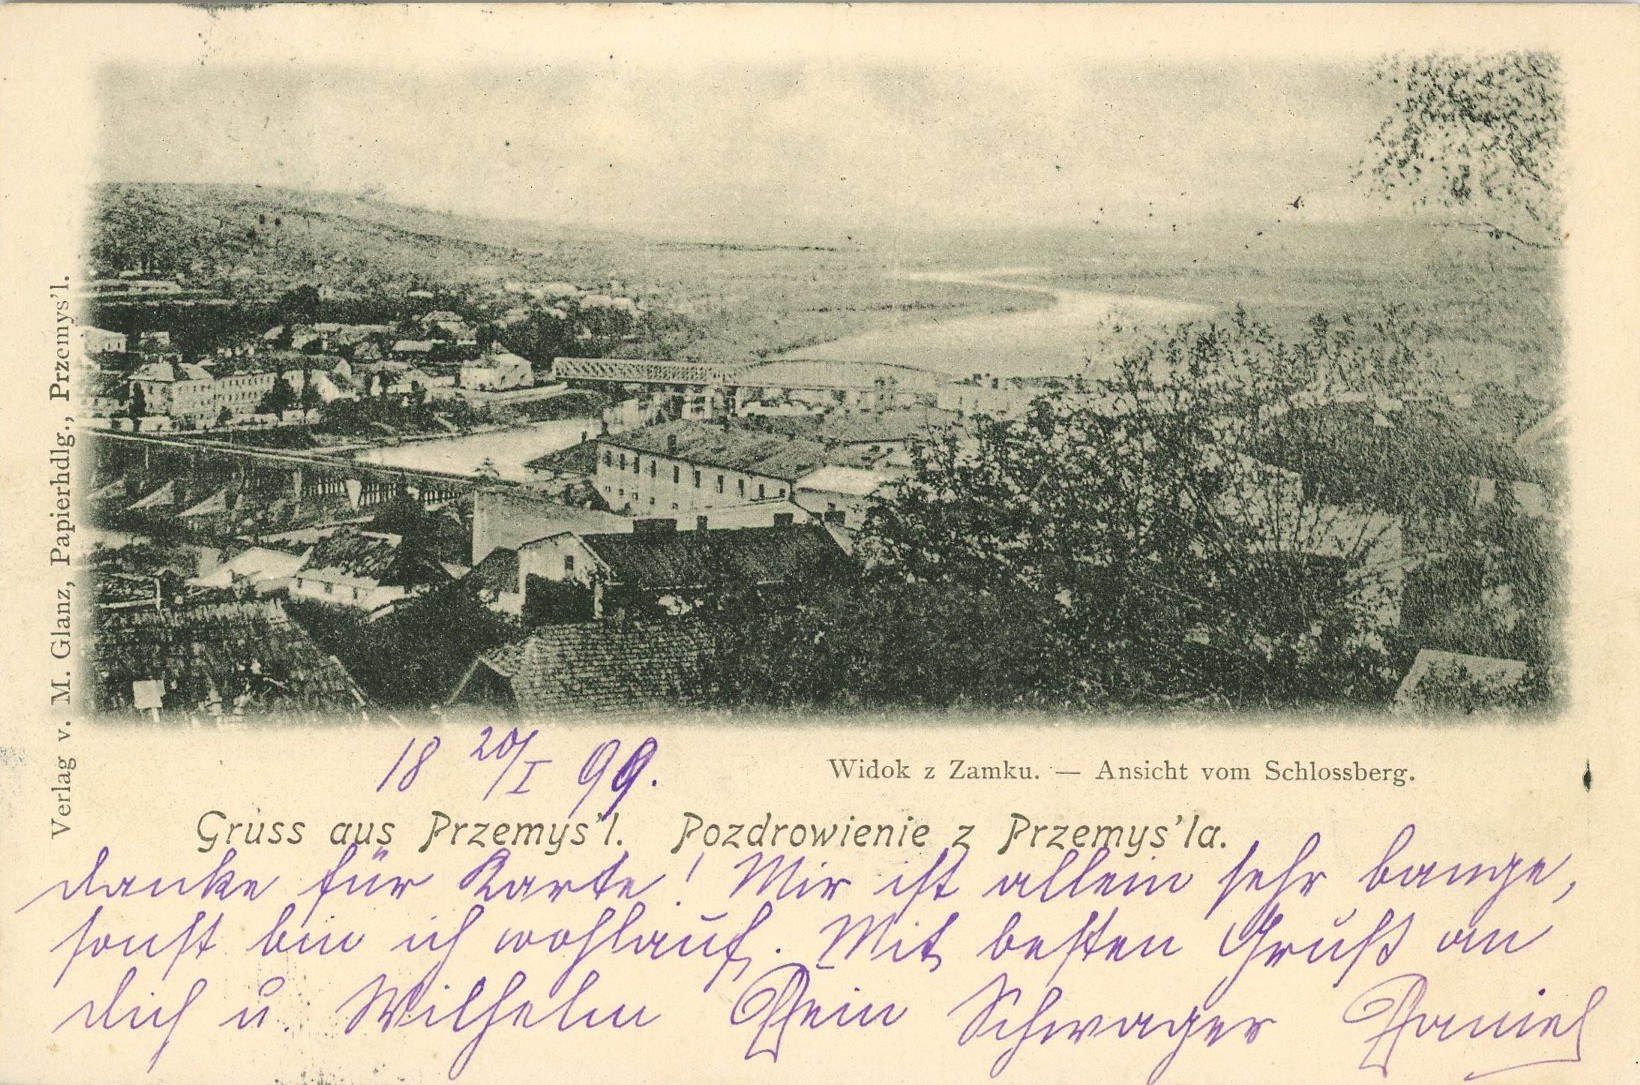 Verlag v. M. Glanz, Papierhdlg., Przemyś'l.
18 20/I 99.
Widok z Zamku. — Ansicht vom Schlossberg.
Gruss aus Przemys'l. Pozdrowienie z Przemys'la.
danke für Karte! Mir ist allein sehr bange,
sonst bin ich wohlauf. Mit besten Gruß an
dich u. Wilhelm Dein Schwager Daniel